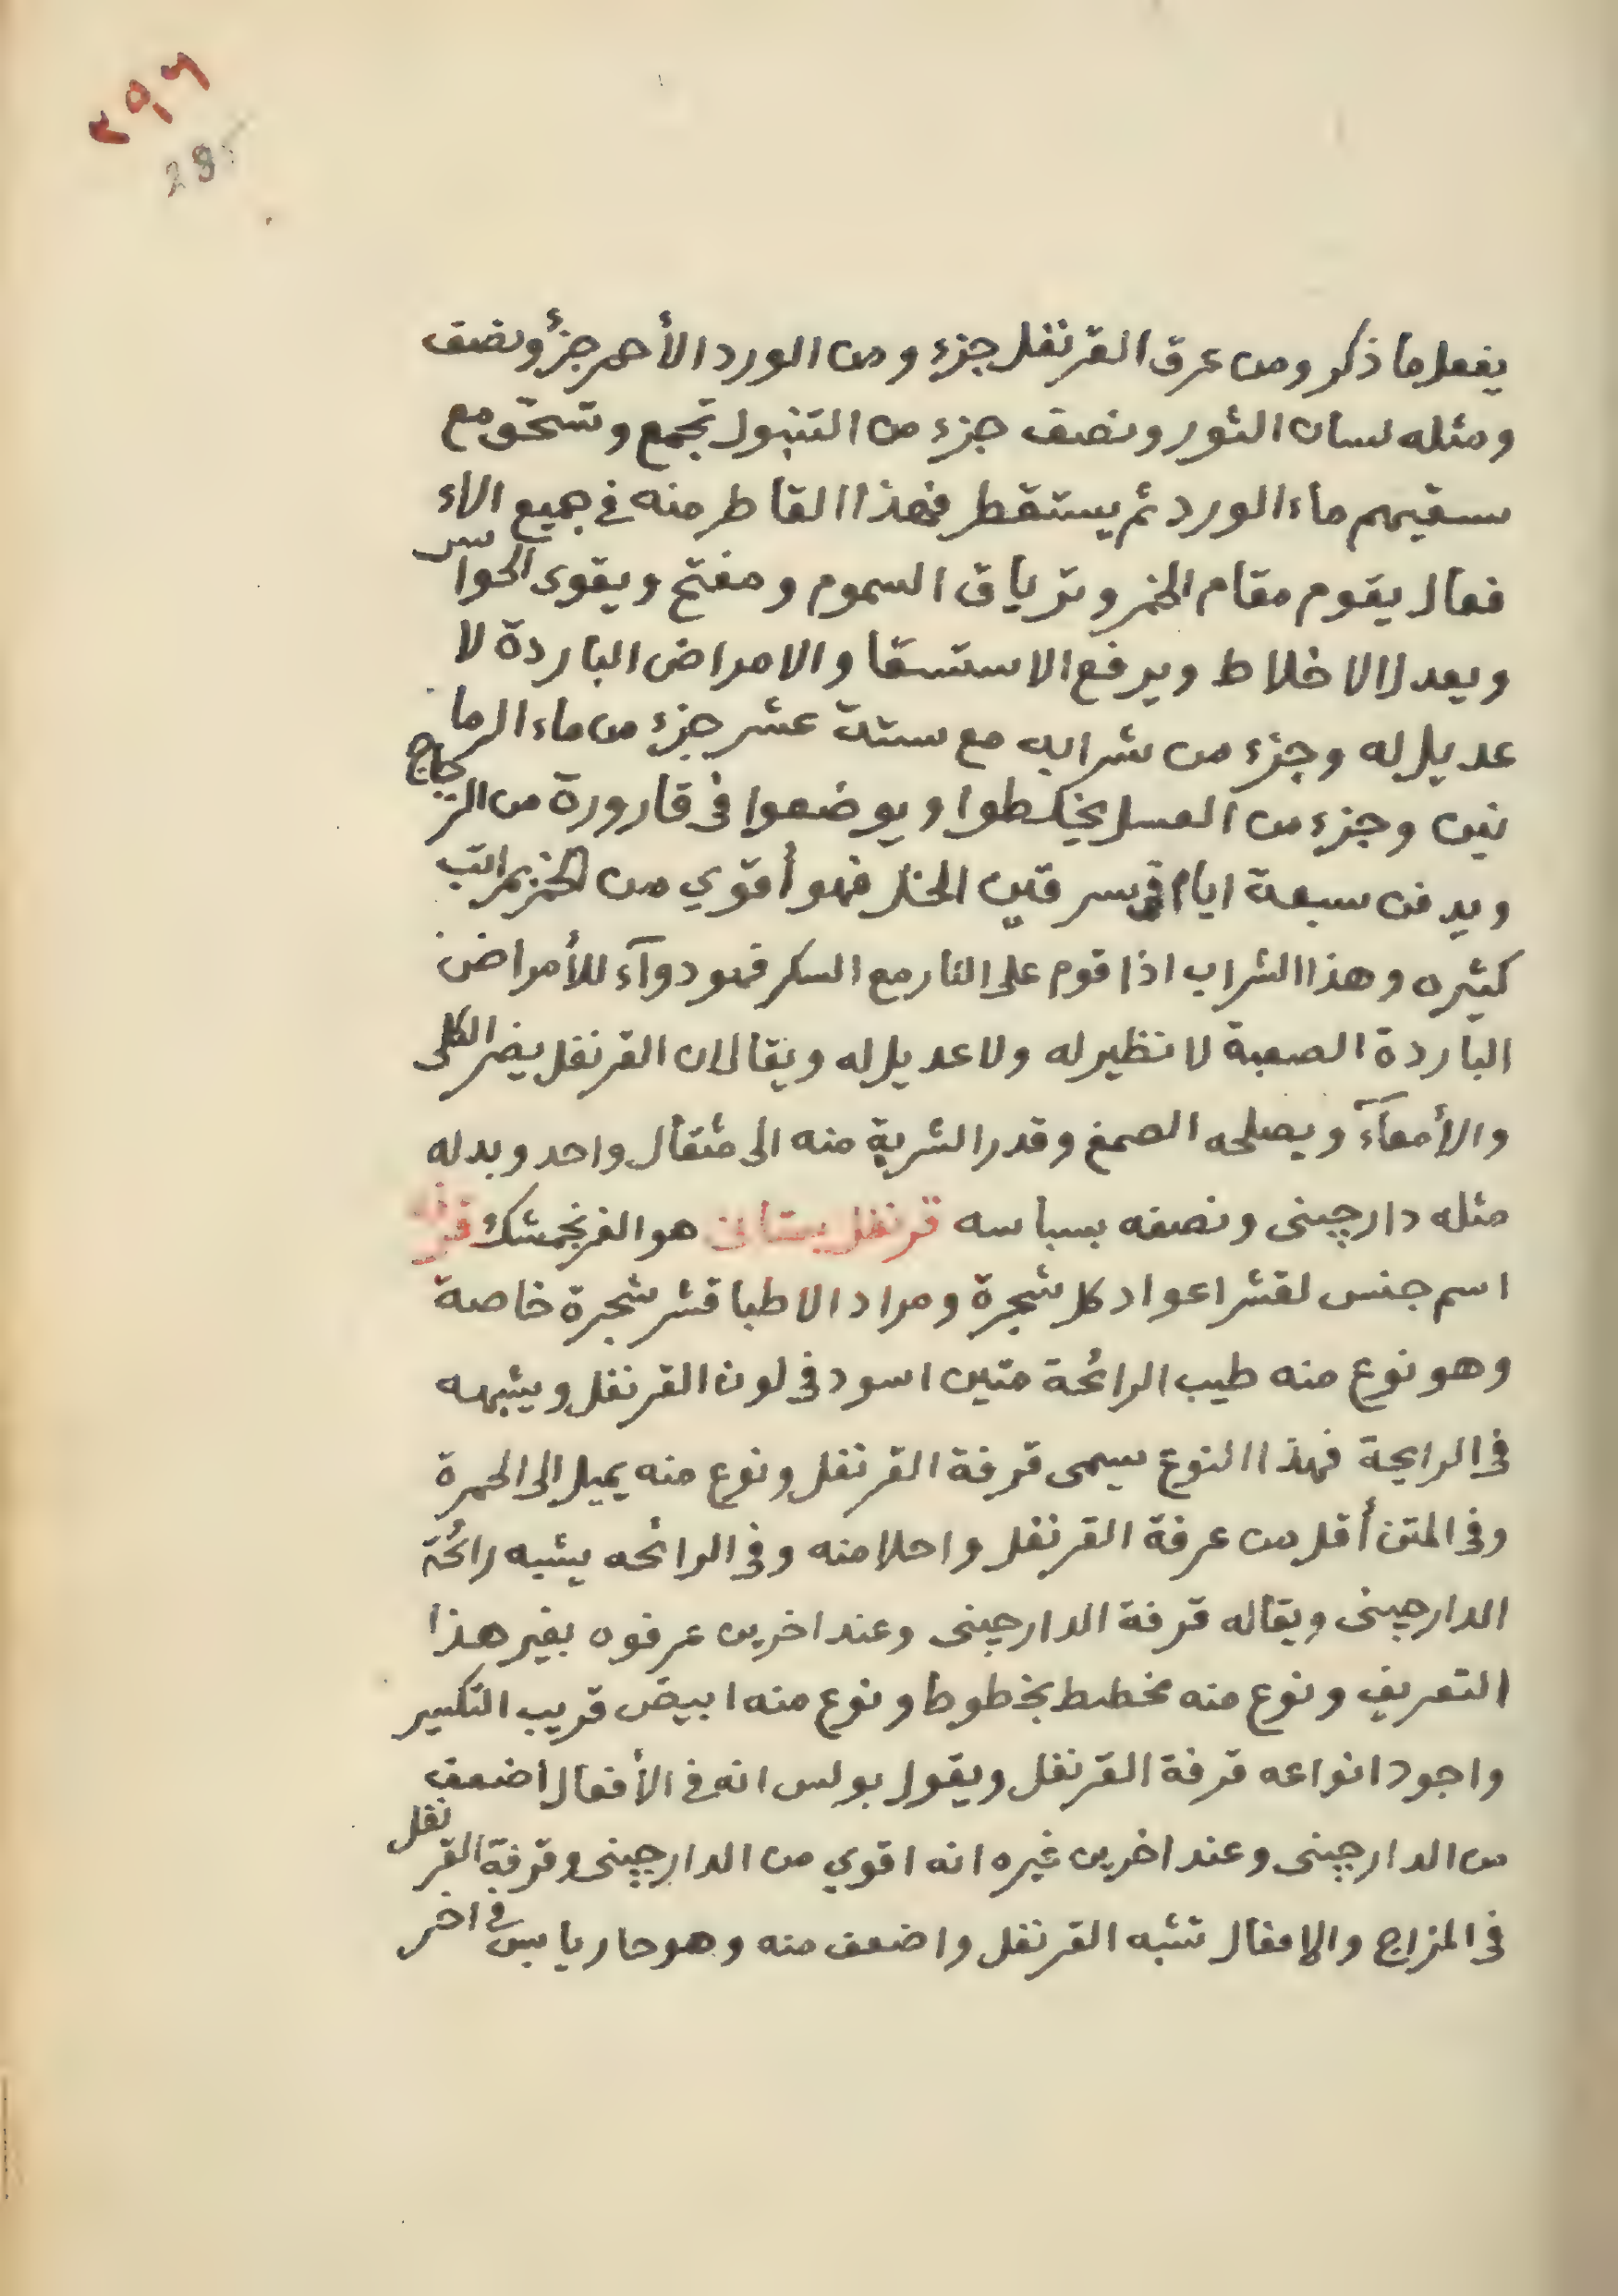 يفعل ما ذكر ومن عرق القرنفل جزء ومن الورد الأحمر جزؤ ونصف
ومثله لسان الثور ونصف جزء من التنبول تجمع وتسحق مع
سقيهم ماء الورد ثم يستقطر فهذا القاطر منه في جميع الاء
فعال يقوم مقام الخمر وترياق السموم ومفتح ويقوى الحواس
ويعدل الاخلاط ويرفع الاستسقا والامراض الباردة لا
عديل له وجزء من شرابه مع ستة عشر جزء من ماء الرما
نين وجزء من العسل يخلطوا ويوضعوا في قارورة من الزجاج
ويدفن سبعة ايام في سرقين الخيل فهو أقوي من الخمر بمراتب
كثيره وهذا الشراب اذا قوم على النار مع السكر فهو دوآء للأمراض
الباردة الصعبة لا نظير له ولا عديل له ويقال ان القرنفل يضر الكلى
والأمعآء ويصلحه الصمغ وقدر الشربة منه الى مثقال واحد وبدله
مثله دارچينى ونصفه بسباسه قرنفل بستانى هو الفرنجمشك قرفه
اسم جنس لقشر اعواد كل شجرة ومراد الاطبا قشر شجرة خاصة
وهو نوع منه طيب الرائحة متين اسود في لون القرنفل ويشبهه
في الرايحة فهذا النوع يسمى قرفة القرنفل ونوع منه يميل الى الحمرة
وفي المتن أقل من عرفة القرنفل واحلا منه وفي الرائحه يشبه رائحة
الدارچينى ويقال له قرفة الدارچينى وعند اخرين عرفوه بغير هذا
التعريف ونوع منه مخطط بخطوط ونوع منه ابيض قريب التكسير
واجود انواعه قرفة القرنفل ويقول بولس انه في الأفعال اضعف
من الدارچينى وعند اخرين غيره انه اقوي من الدارچينى وقرفة القرنفل
في المزاج والافعال تشبه القرنفل واضعف منه وهو حار يابس في اخر